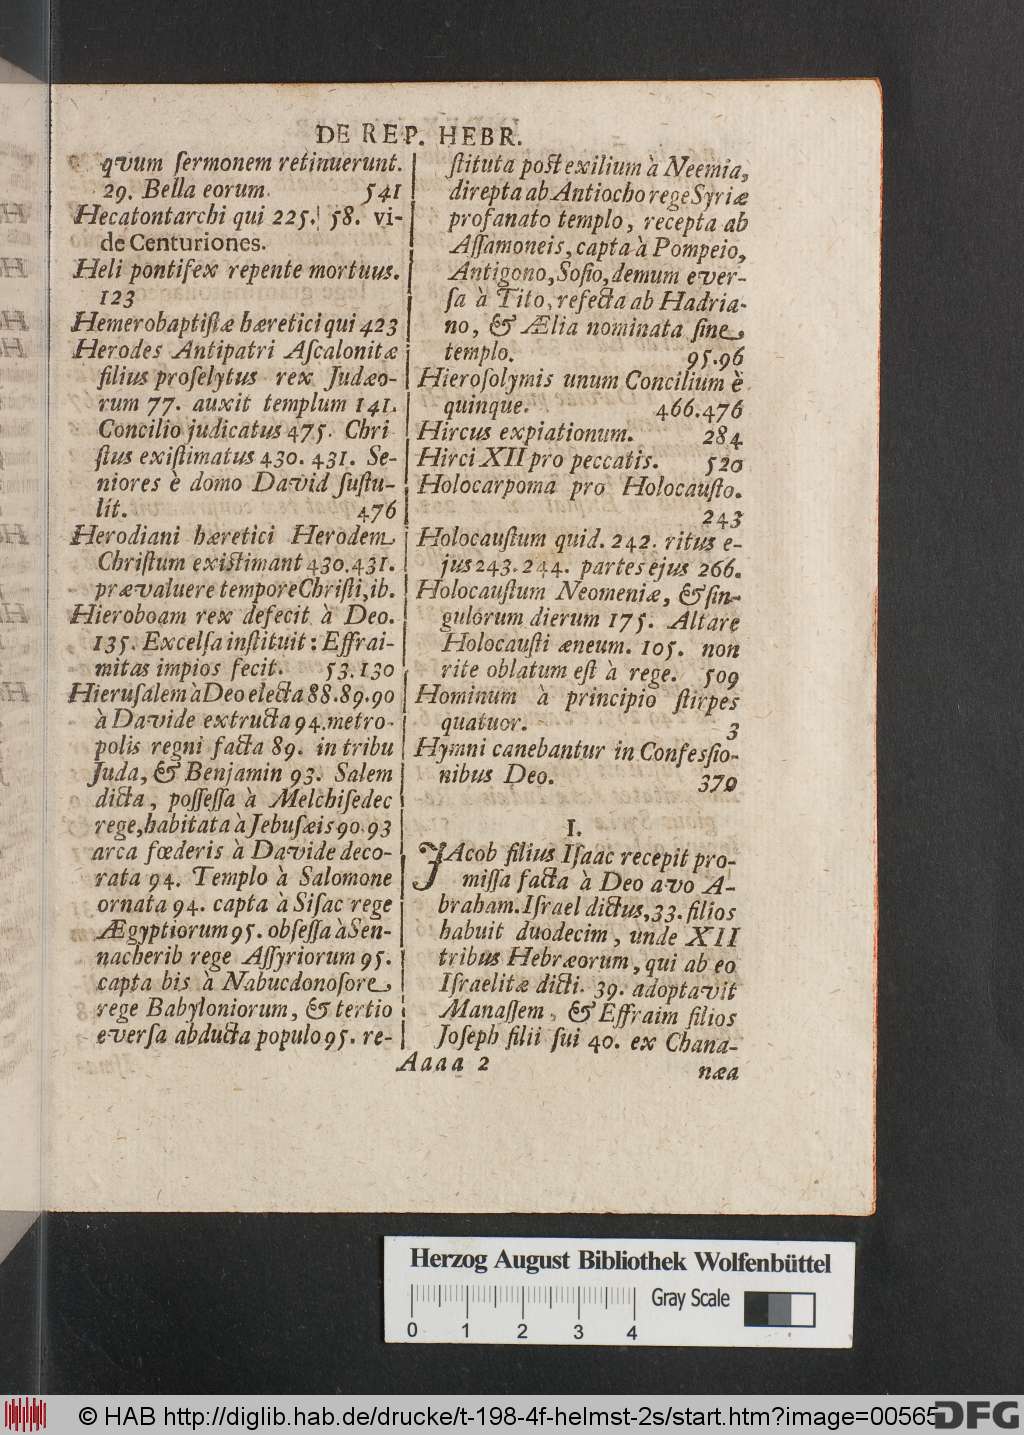 DE REP. HEBR.
qvum ſermonem retinuerunt.
29. Bella eorum. 541
Hecatontarchi qui 225. 58. vi-
de Centuriones.
Heli pontifex repente mortuus.
123
Hemerobaptiſtæ hæretici qui 423
Herodes Antipatri Aſcalonitæ
filius proſelytus rex Judæo-
rum 77. auxit templum 141.
Concilio judicatus 475. Chri
ſtus exiſtimatus 430. 431. Se-
niores è domo David ſuſtu-
lit. 476
Herodiani hæretici Herodem
Chriſtum exiſtimant 430.431.
prævaluere tempore Chriſti, ib.
Hieroboam rex defecit à Deo.
135. Excelſa inſtituit: Effrai-
mitas impios fecit. 53.130
Hieruſalem à Deo electa 88.89.90
à Davide extructa 94. metro-
polis regni facta 89. in tribu
Juda, & Benjamin 93. Salem
dicta, poſſeſſa à Melchiſedec
rege, habitata à Jebuſæis 90.93
arca fœderis à Davide deco-
rata 94. Templo à Salomone
ornata 94. capta à Siſac rege
Ægyptiorum 95. obſeſſa à Sen-
nacherib rege Aſſyriorum 95.
capta bis à Nabucdonoſore
rege Babyloniorum, & tertio
everſa abducta populo 95. re-
ſtituta post exilium à Neemia,
direpta ab Antiocho rege Syriæ
profanato templo, recepta ab
Aſſamoneis, capta à Pompeio,
Antigono, Soſio, demum ever-
ſa à Tito, refecta ab Hadria-
no, & Ælia nominata ſine
templo. 95.96
Hieroſolymis unum Concilium è
quinque. 466.476
Hircus expiationum. 284
Hirci XII pro peccatis. 520
Holocarpoma pro Holocauſto.
243
Holocauſtum quid. 242. ritus e-
jus 243. 244. partes ejus 266.
Holocauſtum Neomeniæ, & ſin-
gulorum dierum 175. Altare
Holocauſti æneum. 105. non
rite oblatum eſt à rege. 509
Hominum à principio ſtirpes
quatuor. 3
Hymni canebantur in Confeſſio-
nibus Deo. 370
I.
JAcob filius Iſaac recepit pro-
miſſa facta à Deo avo A-
braham. Iſrael dictus, 33. filios
habuit duodecim, unde XII
tribus Hebræorum, qui ab eo
Iſraelitæ dicti. 39. adoptavit
Manaſſem, & Effraim filios
Joſeph filii ſui 40. ex Chana-
Aaaa 2
næa
Herzog August Bibliothek Wolfenbüttel
Gray Scale
0 1 2 3 4
© HAB http://diglib.hab.de/drucke/t-198-4f-helmst-2s/start.htm?image=00565
DFG